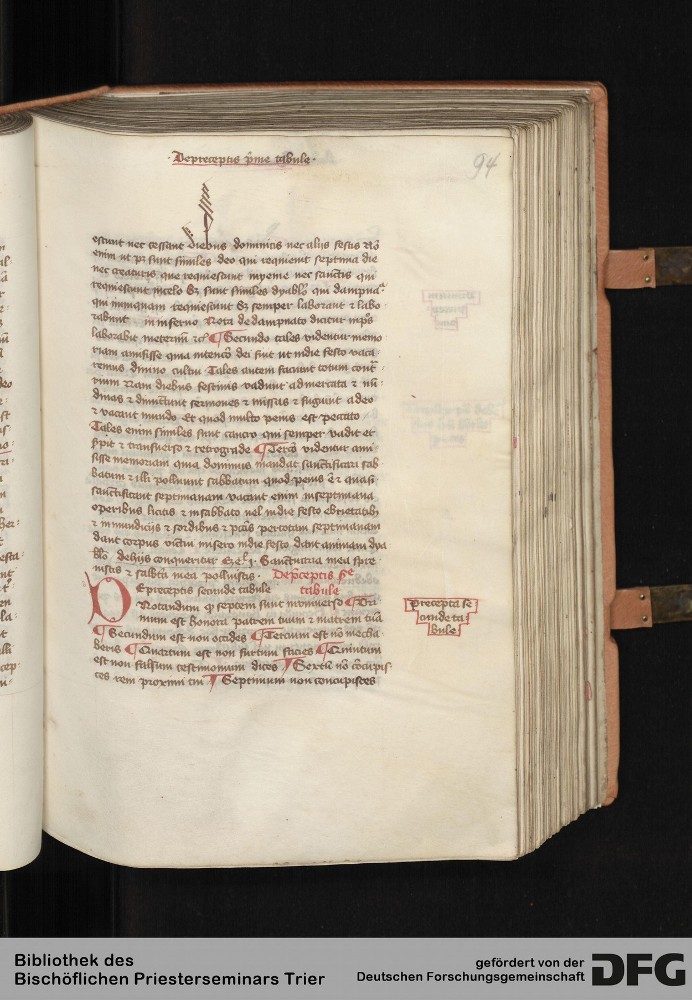 · De preceptis p̄me tabule ·
94
escunt nec cessant diebus dominicis nec alijs festis Nō
enim ut pꝫ sunt similes deo qui requieuit septima die
nec creaturis que requiescunt nec sanctis qui
requiescunt in celo sꝫ sunt similes dyablo qui
qui nunquam requiescunt sꝫ semper laborant ⁊ labo
rabunt in inferno Nota de dampnato dicitur
laborabit ⁊cͣ ¶ Secundo tales videntur memo
riam amisisse quia dei fuit ut in die festo vaca
remus diuino cultui Tales autem faciunt totum
rium Nam diebus festiuis vadunt ad mercata ⁊ nū
dinas ⁊ dimittunt sermones ⁊ missas ⁊ fugiunt a deo
⁊ vacant mundo Et quod multo peius est peccato
Tales enim similes sunt cancro qui semper vadit et
⁊ transuerso ⁊ retrograde ¶ videntur ami
sisse memoriam quia dominus mandat sanctificari sab
batum ⁊ illi polluunt sabbatum quod peius ē ⁊ quasi
sanctificant septimanam vacant enim in septimana
operibus licitis ⁊ in sabbato vel in die festo ebrietatibꝫ
⁊ in mundicijs ⁊ sordibus ⁊ pcc̄is per totam septimanam
dant corpus victui misero in die festo dant animam dya
blo de hijs conqueritur Sanctuaria mea spre
uistis ⁊ sabbata mea polluistis · De p̄ceptis
tabule
De preceptis secunde tabule
Notandum ꝙ septem sunt in vniuerso ¶ Pri
mum est honora patrem tuum ⁊ matrem tuā
¶ Secundum est non occides ¶ Tercium est nō mecha
beris ¶ Quartum est non furtum facies ¶ Quintum
est non falsum testimonium dices ¶ Sextū nō cōcupis
ces rem proximi tui ¶ Septimum non concupisces
Precepta se
cunde ta
bule
Bibliothek des
Bischöflichen Priesterseminars Trier
gefördert von der
Deutschen Forschungsgemeinschaft
DFG